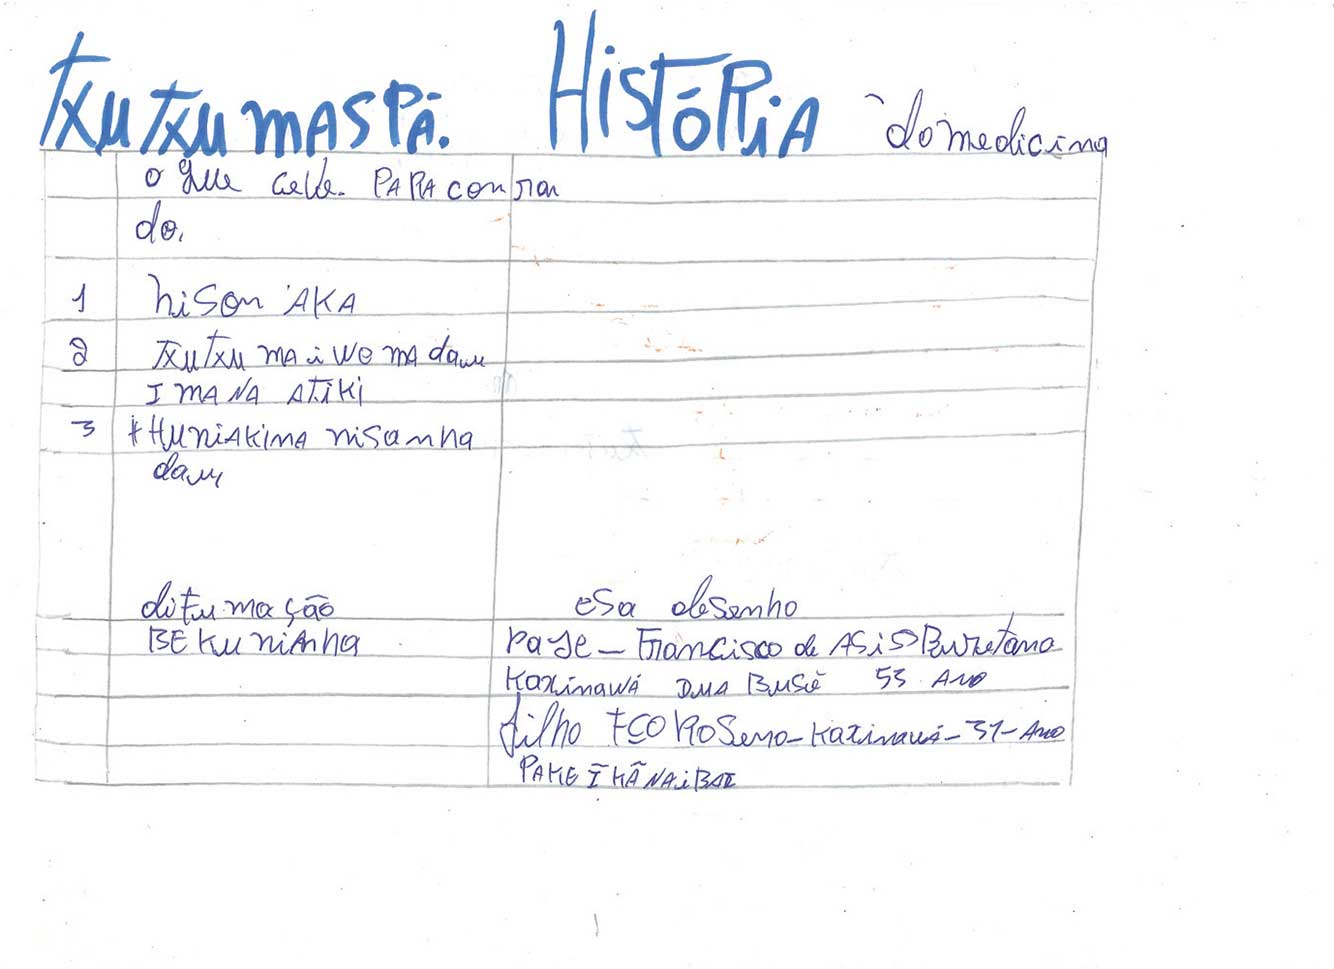 TXUTXU MASPÃ. HiSTŌRiA do medicina
o que PARA con
do.
1 hison AKA
2 TXUTXU MA i WO MA dau
I MA NA ATiKi
3 HUNiAKiMA nisanha
dau
ditumação esa desenho
BE KU NiANhA paje – Francisco de ASiS
Kaxinawá DUA BUSĒ 53 ANO
filho FCO ROSeno – Kaxinawá – 31 – Ano
PAKE Ĩ KÃ NAiBAI